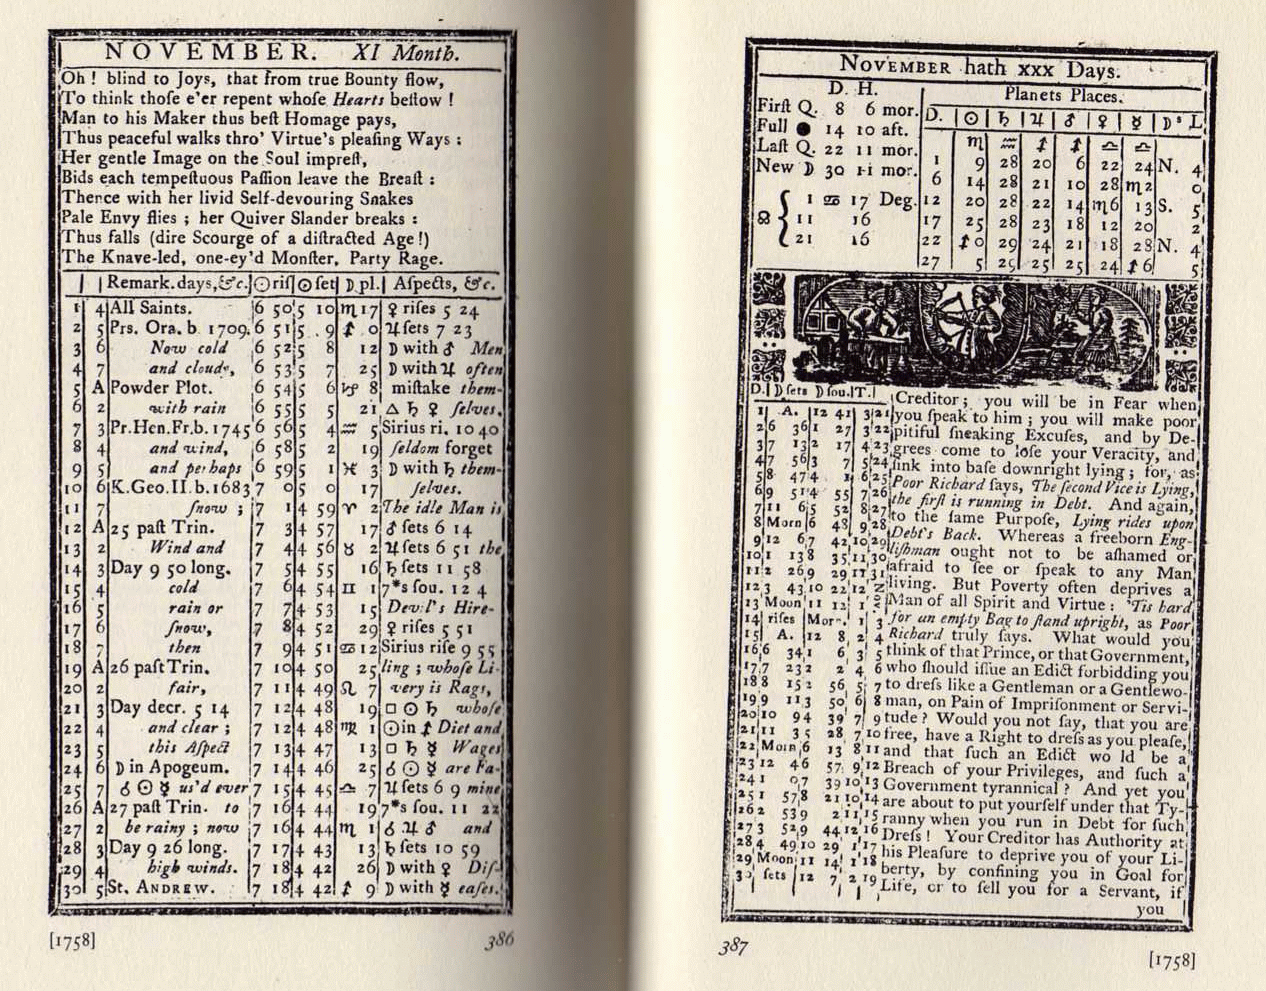 NOVEMBER. XI Month.
Oh ! blind to Joys, that from true Bounty flow,
To think thoſe e'er repent whoſe Hearts beſtow !
Man to his Maker thus beſt Homage pays,
Thus peaceful walks thro' Virtue's pleaſing Ways :
Her gentle Image on the Soul impreſt,
Bids each tempeſtuous Paſſion leave the Breaſt :
Thence with her livid Self-devouring Snakes
Pale Envy flies ; her Quiver Slander breaks :
Thus falls (dire Scourge of a diſtracted Age !)
The Knave-led, one-ey'd Monſter, Party Rage.
Remark. days, &c. ☉ riſ ☉ ſet ☽ pl. Aſpects, &c.
1 4 All Saints. 6 50 5 10 ♏ 17 ♀ riſes 5 24
2 5 Prs. Ora. b. 1709. 6 51 5 9 ♐ 0 ♃ ſets 7 23
3 6 Now cold 6 52 5 8 12 ☽ with ♂ Men
4 7 and clouds, 6 53 5 7 25 ☽ with ♃ often
5 A Powder Plot. 6 54 5 6 ♑ 8 miſtake them-
6 2 with rain 6 55 5 5 21 △ ♄ ♀ ſelves,
7 3 Pr. Hen. Fr. b. 1745 6 56 5 4 ♒ 5 Sirius ri. 10 40
8 4 and wind, 6 58 5 2 19 ſeldom forget
9 5 and perhaps 6 59 5 1 ♓ 3 ☽ with ♄ them-
10 6 K. Geo. II. b. 1683 7 0 5 0 17 ſelves.
11 7 ſnow ; 7 1 4 59 ♈ 2 The idle Man is
12 A 25 paſt Trin. 7 3 4 57 17 ♂ ſets 6 14
13 2 Wind and 7 4 4 56 ♉ 2 ♃ ſets 6 51 the
14 3 Day 9 50 long. 7 5 4 55 16 ♄ ſets 11 58
15 4 cold 7 6 4 54 ♊ 1 7*s ſou. 12 4
16 5 rain or 7 7 4 53 15 Devil's Hire-
17 6 ſnow, 7 8 4 52 29 ♀ riſes 5 51
18 7 then 7 9 4 51 ♋ 12 Sirius riſe 9 55
19 A 26 paſt Trin. 7 10 4 50 25 ling ; whoſe Li-
20 2 fair, 7 11 4 49 ♌ 7 very is Rags,
21 3 Day decr. 5 14 7 12 4 48 19 □ ☉ ♄ whoſe
22 4 and clear ; 7 12 4 48 ♍ 1 ☉ in ♐ Diet and
23 5 this Aſpect 7 13 4 47 13 □ ♄ ☿ Wages
24 6 ☽ in Apogeum. 7 14 4 46 25 ☌ ☉ ☿ are Fa-
25 7 ☌ ☉ ☿ us'd ever 7 15 4 45 ♎ 7 ♃ ſets 6 9 mine
26 A 27 paſt Trin. to 7 16 4 44 19 7*s ſou. 11 22
27 2 be rainy ; now 7 16 4 44 ♏ 1 ☌ ♃ ♂ and
28 3 Day 9 26 long. 7 17 4 43 13 ♄ ſets 10 59
29 4 high winds. 7 18 4 42 26 ☽ with ♀ Diſ-
30 5 St. ANDREW. 7 18 4 42 ♐ 9 ☽ with ☿ eaſes.
[1758] 386
NOVEMBER hath xxx Days.
D. H.
Firſt Q. 8 6 mor.
Full ● 14 10 aft.
Laſt Q. 22 11 mor.
New ☽ 30 11 mor.
☊ { 1 ♋ 17 Deg.
11 16
21 16
Planets Places.
D. ☉ ♄ ♃ ♂ ♀ ☿ ☽'s L
♏ ♒ ♐ ♐ ♎ ♎
1 9 28 20 6 22 24 N. 4
6 14 28 21 10 28 ♏ 2 0
12 20 28 22 14 ♏ 6 13 S. 5
17 25 28 23 18 12 20 2
22 ♐ 0 29 24 21 18 28 N. 4
27 5 29 25 25 24 ♐ 6 5
D. ☽ ſets ☽ ſou. T.
1 A. 12 41 3 21
2 6 36 1 27 3 22
3 7 13 2 17 4 23
4 7 56 3 7 5 24
5 8 47 4 1 6 25
6 9 51 4 55 7 26
7 11 6 5 52 8 27
8 Morn 6 48 9 28
9 12 6 7 42 10 29
10 1 13 8 35 11 30
11 2 26 9 29 12 31
12 3 43 10 22 12
13 Moon 11 12 1 2
14 riſes Morn. 1 3
15 A. 12 8 2 4
16 6 34 1 6 3 5
17 7 23 2 2 4 6
18 8 15 2 56 5 7
19 9 11 3 50 6 8
20 10 9 4 39 7 9
21 11 3 5 28 7 10
22 Morn 6 13 8 11
23 12 4 6 57 9 12
24 1 0 7 39 10 13
25 1 57 8 21 10 14
26 2 53 9 2 11 15
27 3 52 9 44 12 16
28 4 49 10 29 1 17
29 Moon 11 14 1 18
30 ſets 12 7 2 19
Creditor ; you will be in Fear when
you ſpeak to him ; you will make poor
pitiful ſneaking Excuſes, and by De-
grees come to loſe your Veracity, and
ſink into baſe downright lying ; for, as
Poor Richard ſays, The ſecond Vice is Lying,
the firſt is running in Debt. And again,
to the ſame Purpoſe, Lying rides upon
Debt's Back. Whereas a freeborn Eng-
liſhman ought not to be aſhamed or
afraid to ſee or ſpeak to any Man
living. But Poverty often deprives a
Man of all Spirit and Virtue : 'Tis hard
for an empty Bag to ſtand upright, as Poor
Richard truly ſays. What would you
think of that Prince, or that Government,
who ſhould iſſue an Edict forbidding you
to dreſs like a Gentleman or a Gentlewo-
man, on Pain of Impriſonment or Servi-
tude ? Would you not ſay, that you are
free, have a Right to dreſs as you pleaſe,
and that ſuch an Edict wo ld be a
Breach of your Privileges, and ſuch a
Government tyrannical ? And yet you
are about to put yourſelf under that Ty-
ranny when you run in Debt for ſuch
Dreſs ! Your Creditor has Authority at
his Pleaſure to deprive you of your Li-
berty, by confining you in Goal for
Life, or to ſell you for a Servant, if
you
387 [1758]